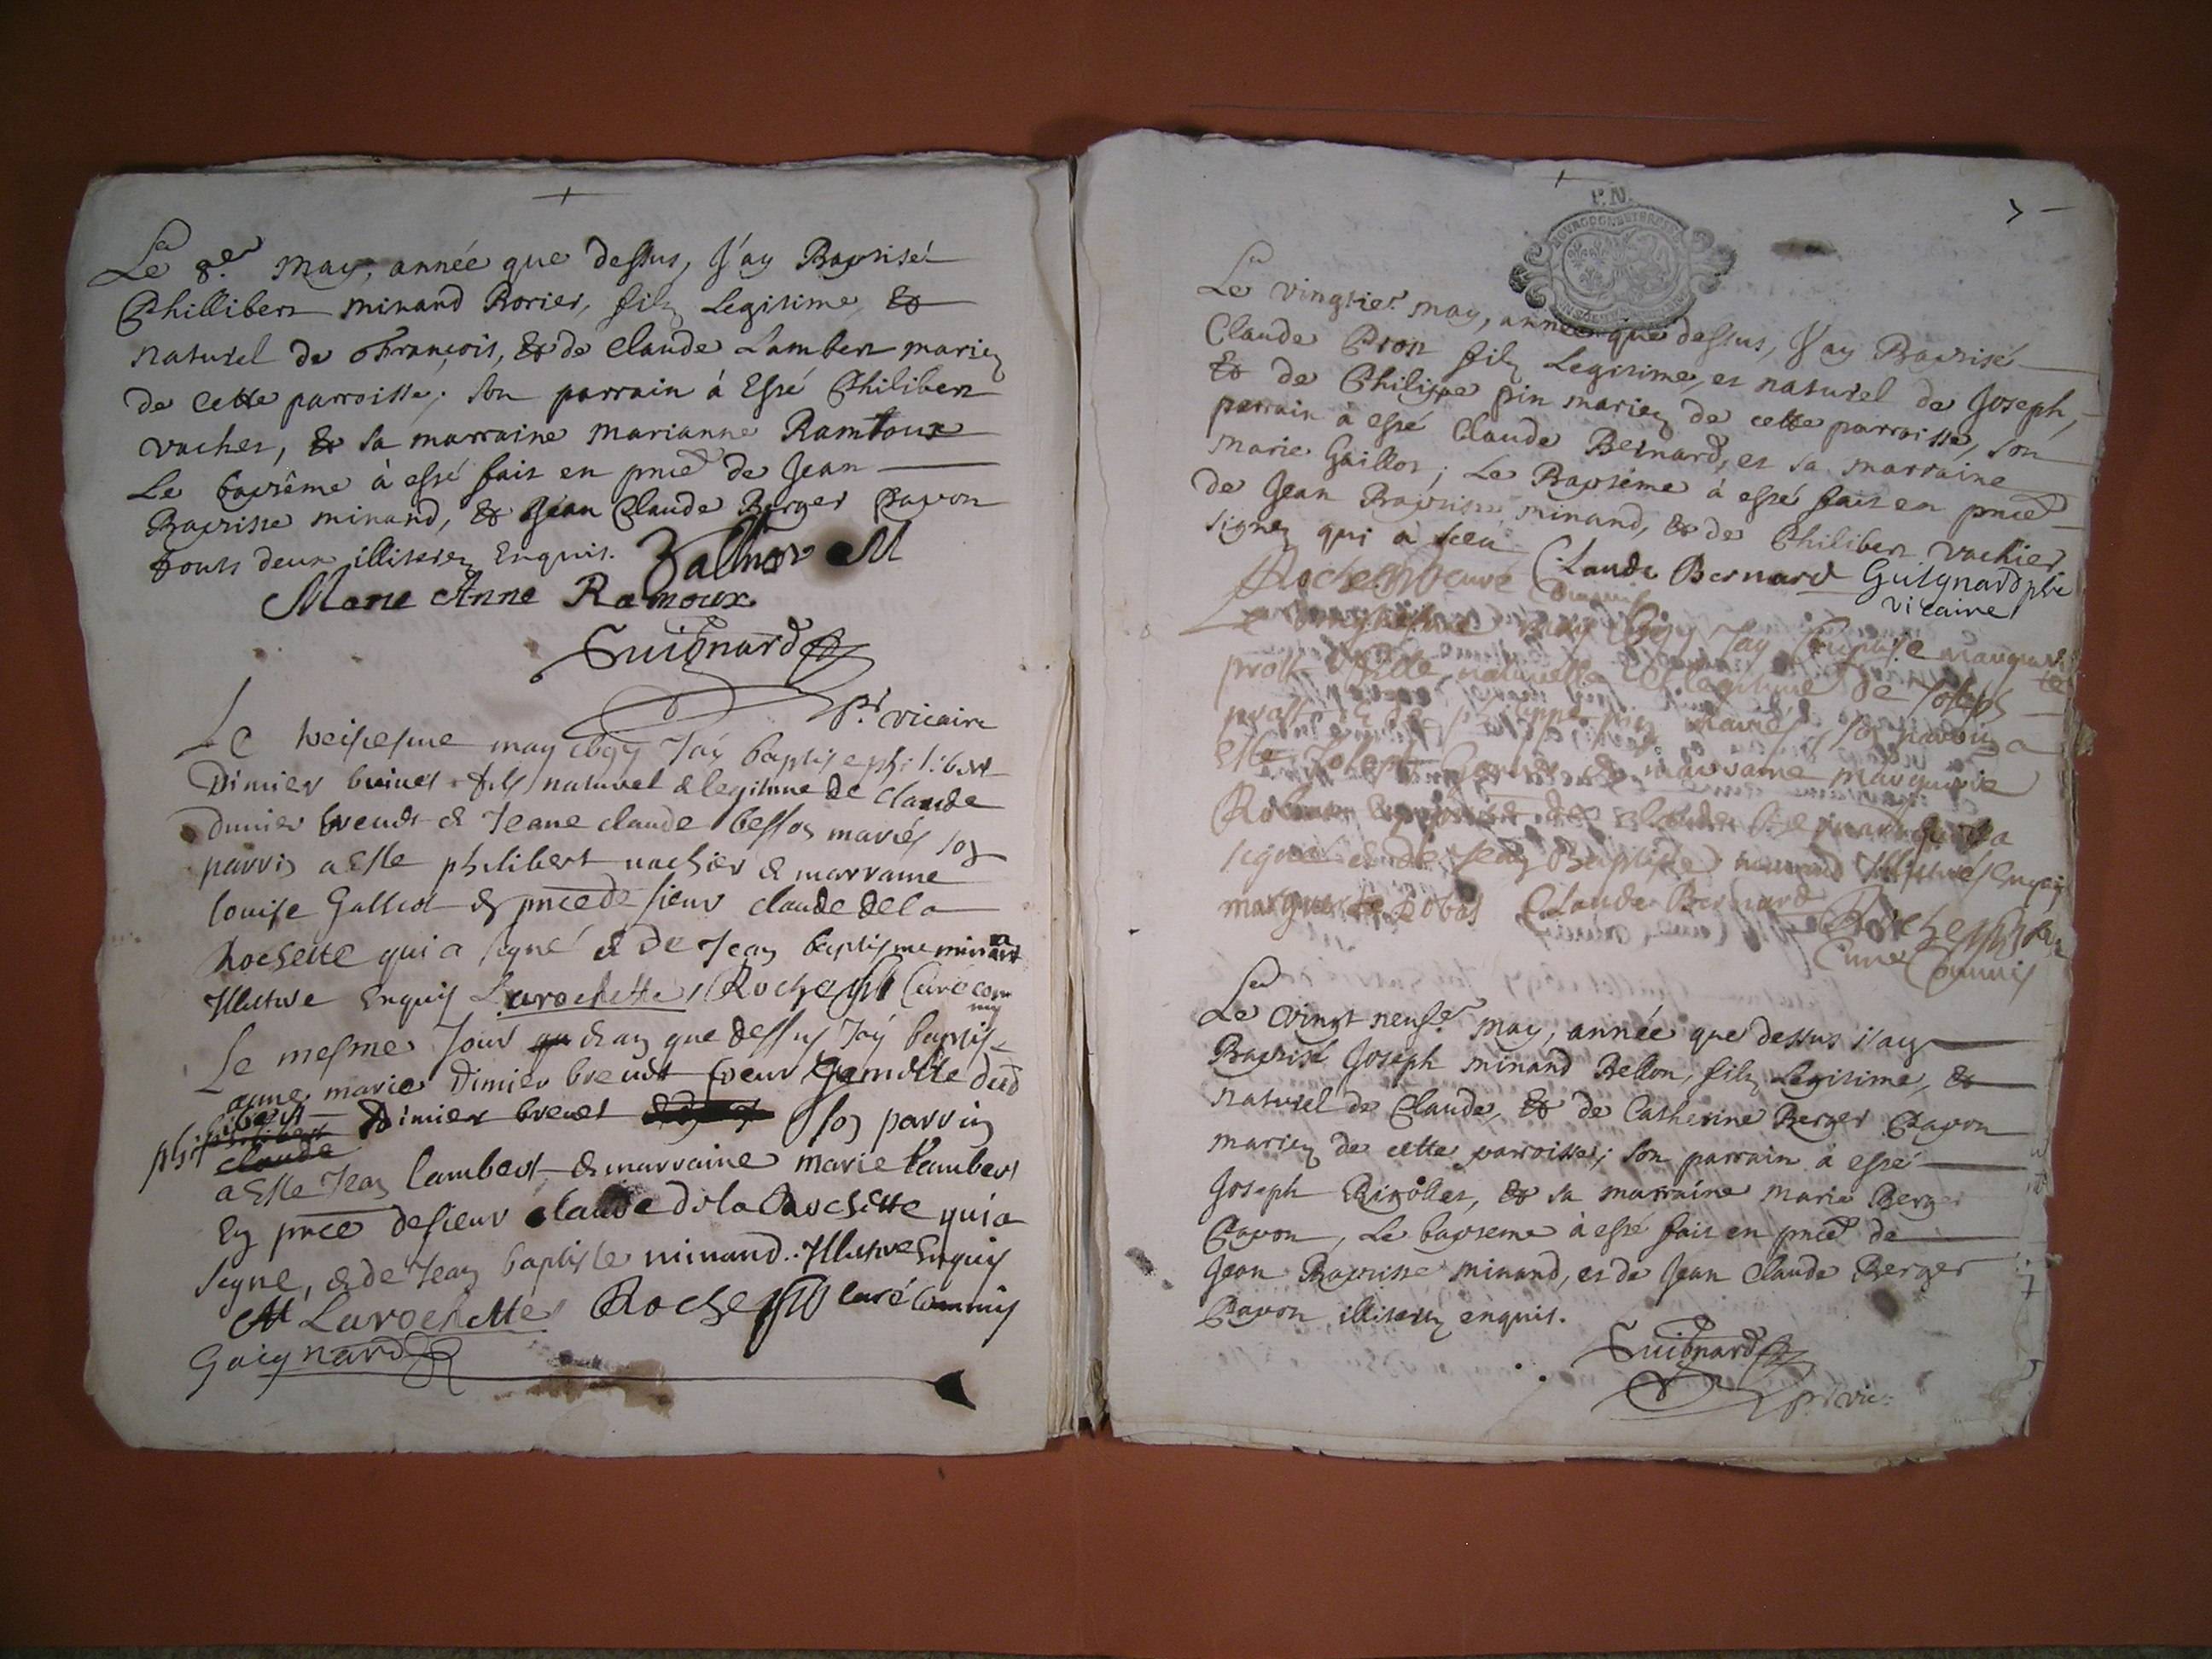 Le 8.e May, année que dessus, J'ay Baptisé
Phillibert minand Borier, filz Legitime, &
naturel de François, & de Claude Lambert mariez
de cette parroisse; son parrain à Esté Philibert
vacher, & sa marraine Marianne Ramtoux
Le baptême à esté fait en pnce de Jean
Baptiste minand, & Jean Claude Berger Pavon
touts deux illiterez Enquis.
Marie Anne Ramoux
Guignard
ptre vicaire
Le treisesme may Jay baptise philibert
Dimier brenet fils naturel & legitime de claude
dimier brenet & Jeane claude besson mariés son
parrin a Este philibert vachier & marraine
louise Galliot & pnce de sieur claude de la
Rochette qui a signé & de Jean baptisme minant
Illiture Enquis Larochette Roche curé com
mis
Le mesme Jour & an que dessus Jay baptise
anne marie Dimier brenet soeur Gemelle dud
philibert Dimier brenet son parrin
claude
a Este Jean lambert & marraine marie lambert
En pnce de sieur claude de la Rochette qui a
signe, & de Jean baptiste minand Illiture Enquis
Larochette Roche curé Commis
Guignard
P.N.
7
Le vingtie.r may, année que dessus, J'ay Baptisé
Claude Pron filz Legitime, et naturel de Joseph,
& de Philippe pin mariez de cette parroisse, son
parrain à esté Claude Bernard, et sa marraine
Marie Gaillot; Le Baptême à esté fait en pnce
de Jean Baptiste minand, & de Philibert vachier
signez qui à sceu
Claude Bernard Guignard ptre
vicaire
may Jay Baptise marguerite
prost fille naturelle et legitime de Joseph
prost & de philippe pin mariés, son parrin a
Este Joseph & marraine marguerite
Robas claude Bernard qui a
signé & de Jean Baptiste minand Illitures Enquis
marguerite Robas Claude Bernard
Curé Commis
Le vingt neuf.e may, année que dessus j'ay
Baptisé Joseph minand Bellon, filz Legitime, &
naturel de Claude, & de Catherine Berger Pavon
mariez de cette parroisse; son parrain à esté
Joseph Rivollet, & sa marraine Marie Berger
Pavon, Le baptême à esté fait en pnce de
Jean Baptiste minand, et de Jean Claude Berger
Pavon illiterez enquis.
Guignard
ptre vic.